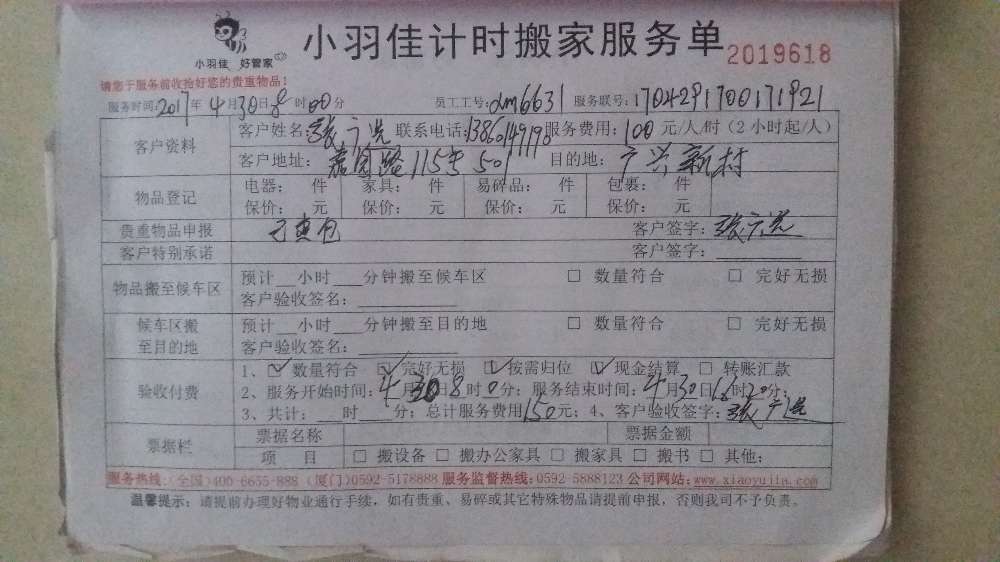 小羽佳计时搬家服务单
2019618
小羽佳 好管家
请您于服务前收拾好您的贵重物品!
服务时间:2017年4月30日8时00分 员工工号:dm6631 服务联号:1704291700171921
客户资料
客户姓名: 联系电话: 服务费用:100元/人/时(2小时起/人)
客户地址:嘉园路115号501 目的地:广兴新村
物品登记
电器: 件 家具: 件 易碎品: 件 包裹: 件
保价: 元 保价: 元 保价: 元 保价: 元
贵重物品申报 客户签字:
客户特别承诺 客户签字:
物品搬至候车区
预计__小时___分钟搬至候车区 □ 数量符合 □ 完好无损
客户验收签名:
候车区搬至目的地
预计__小时___分钟搬至目的地 □ 数量符合 □ 完好无损
客户验收签名:
验收付费
1、☑ 数量符合 ☑ 完好无损 ☑ 按需归位 ☑ 现金结算 □ 转账汇款
2、服务开始时间:4月30日8时0分;服务结束时间:4月30日 时20分;
3、共计:___时___分;总计服务费用150元;4、客户验收签字:
票据栏
票据名称 票据金额
项 目 □ 搬设备 □ 搬办公家具 □ 搬家具 □ 搬书 □ 其他:
服务热线:(全国)400-6655-888 (厦门)0592-5178888 服务监督热线:0592 5888123 公司网站:www.xiaoyujia.com
温馨提示:请提前办理好物业通行手续,如有贵重、易碎或其它特殊物品请提前申报,否则我司不予负责。